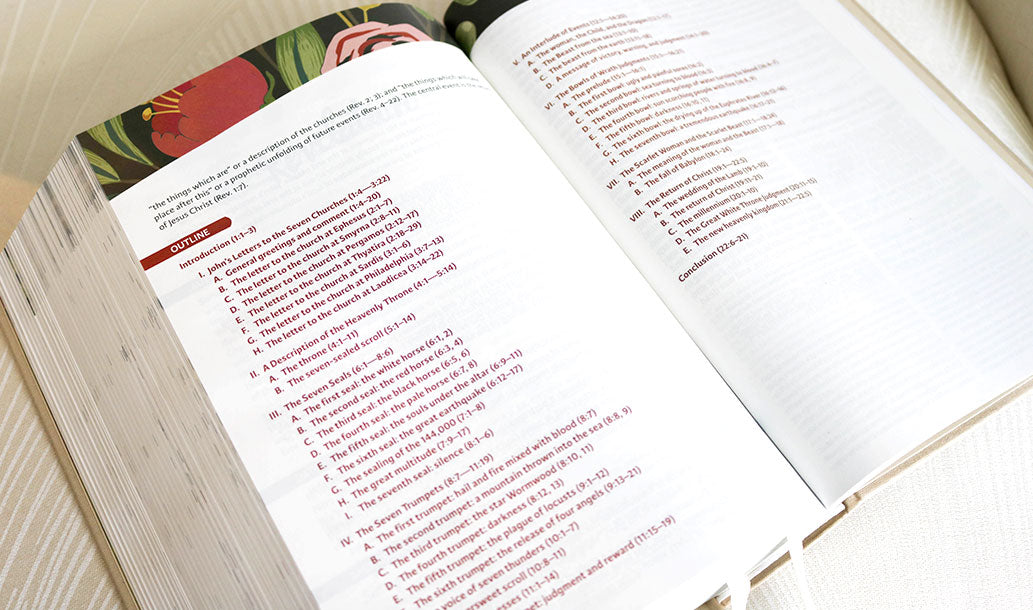 "the things which are" or a description of the churches (Rev. 2; 3); and "the things which will
place after this" or a prophetic unfolding of future events (Rev. 4–22). The central event is the
of Jesus Christ (Rev. 1:7).
OUTLINE
Introduction (1:1–3)
I. John's Letters to the Seven Churches (1:4—3:22)
A. General greetings and comment (1:4–20)
B. The letter to the church at Ephesus (2:1–7)
C. The letter to the church at Smyrna (2:8–11)
D. The letter to the church at Pergamos (2:12–17)
E. The letter to the church at Thyatira (2:18–29)
F. The letter to the church at Sardis (3:1–6)
G. The letter to the church at Philadelphia (3:7–13)
H. The letter to the church at Laodicea (3:14–22)
II. A Description of the Heavenly Throne (4:1—5:14)
A. The throne (4:1–11)
B. The seven-sealed scroll (5:1–14)
III. The Seven Seals (6:1—8:6)
A. The first seal: the white horse (6:1, 2)
B. The second seal: the red horse (6:3, 4)
C. The third seal: the black horse (6:5, 6)
D. The fourth seal: the pale horse (6:7, 8)
E. The fifth seal: the souls under the altar (6:9–11)
F. The sixth seal: the great earthquake (6:12–17)
G. The sealing of the 144,000 (7:1–8)
H. The great multitude (7:9–17)
I. The seventh seal: silence (8:1–6)
IV. The Seven Trumpets (8:7—11:19)
A. The first trumpet: hail and fire mixed with blood (8:7)
B. The second trumpet: a mountain thrown into the sea (8:8, 9)
C. The third trumpet: the star Wormwood (8:10, 11)
D. The fourth trumpet: darkness (8:12, 13)
E. The fifth trumpet: the plague of locusts (9:1–12)
F. The sixth trumpet: the release of four angels (9:13–21)
voice of seven thunders (10:1–7)
ersweet scroll (10:8–11)
esses (11:1–14)
et: judgment and reward (11:15–19)
V. An Interlude of Events (12:1—14:20)
A. The woman, the Child, and the Dragon (12:1–17)
B. The Beast from the sea (13:1–10)
C. The beast from the earth (13:11–18)
D. A message of victory, warning, and judgment (14:1–20)
VI. The Bowls of Wrath Judgments (15:1—16:21)
A. The prelude (15:1—16:1)
B. The first bowl: ugly and painful sores (16:2)
C. The second bowl: sea turning to blood (16:3)
D. The third bowl: rivers and springs of water turning to blood (16:4–7)
E. The fourth bowl: sun scorching people with fire (16:8, 9)
F. The fifth bowl: darkness (16:10, 11)
G. The sixth bowl: the drying up of the Euphrates River (16:12–16)
H. The seventh bowl: a tremendous earthquake (16:17–21)
VII. The Scarlet Woman and the Scarlet Beast (17:1—18:24)
A. The meaning of the woman and the Beast (17:1–18)
B. The fall of Babylon (18:1–24)
VIII. The Return of Christ (19:1—22:5)
A. The wedding of the Lamb (19:1–10)
B. The return of Christ (19:11–21)
C. The millennium (20:1–10)
D. The Great White Throne Judgment (20:11–15)
E. The new heavenly kingdom (21:1—22:5)
Conclusion (22:6–21)